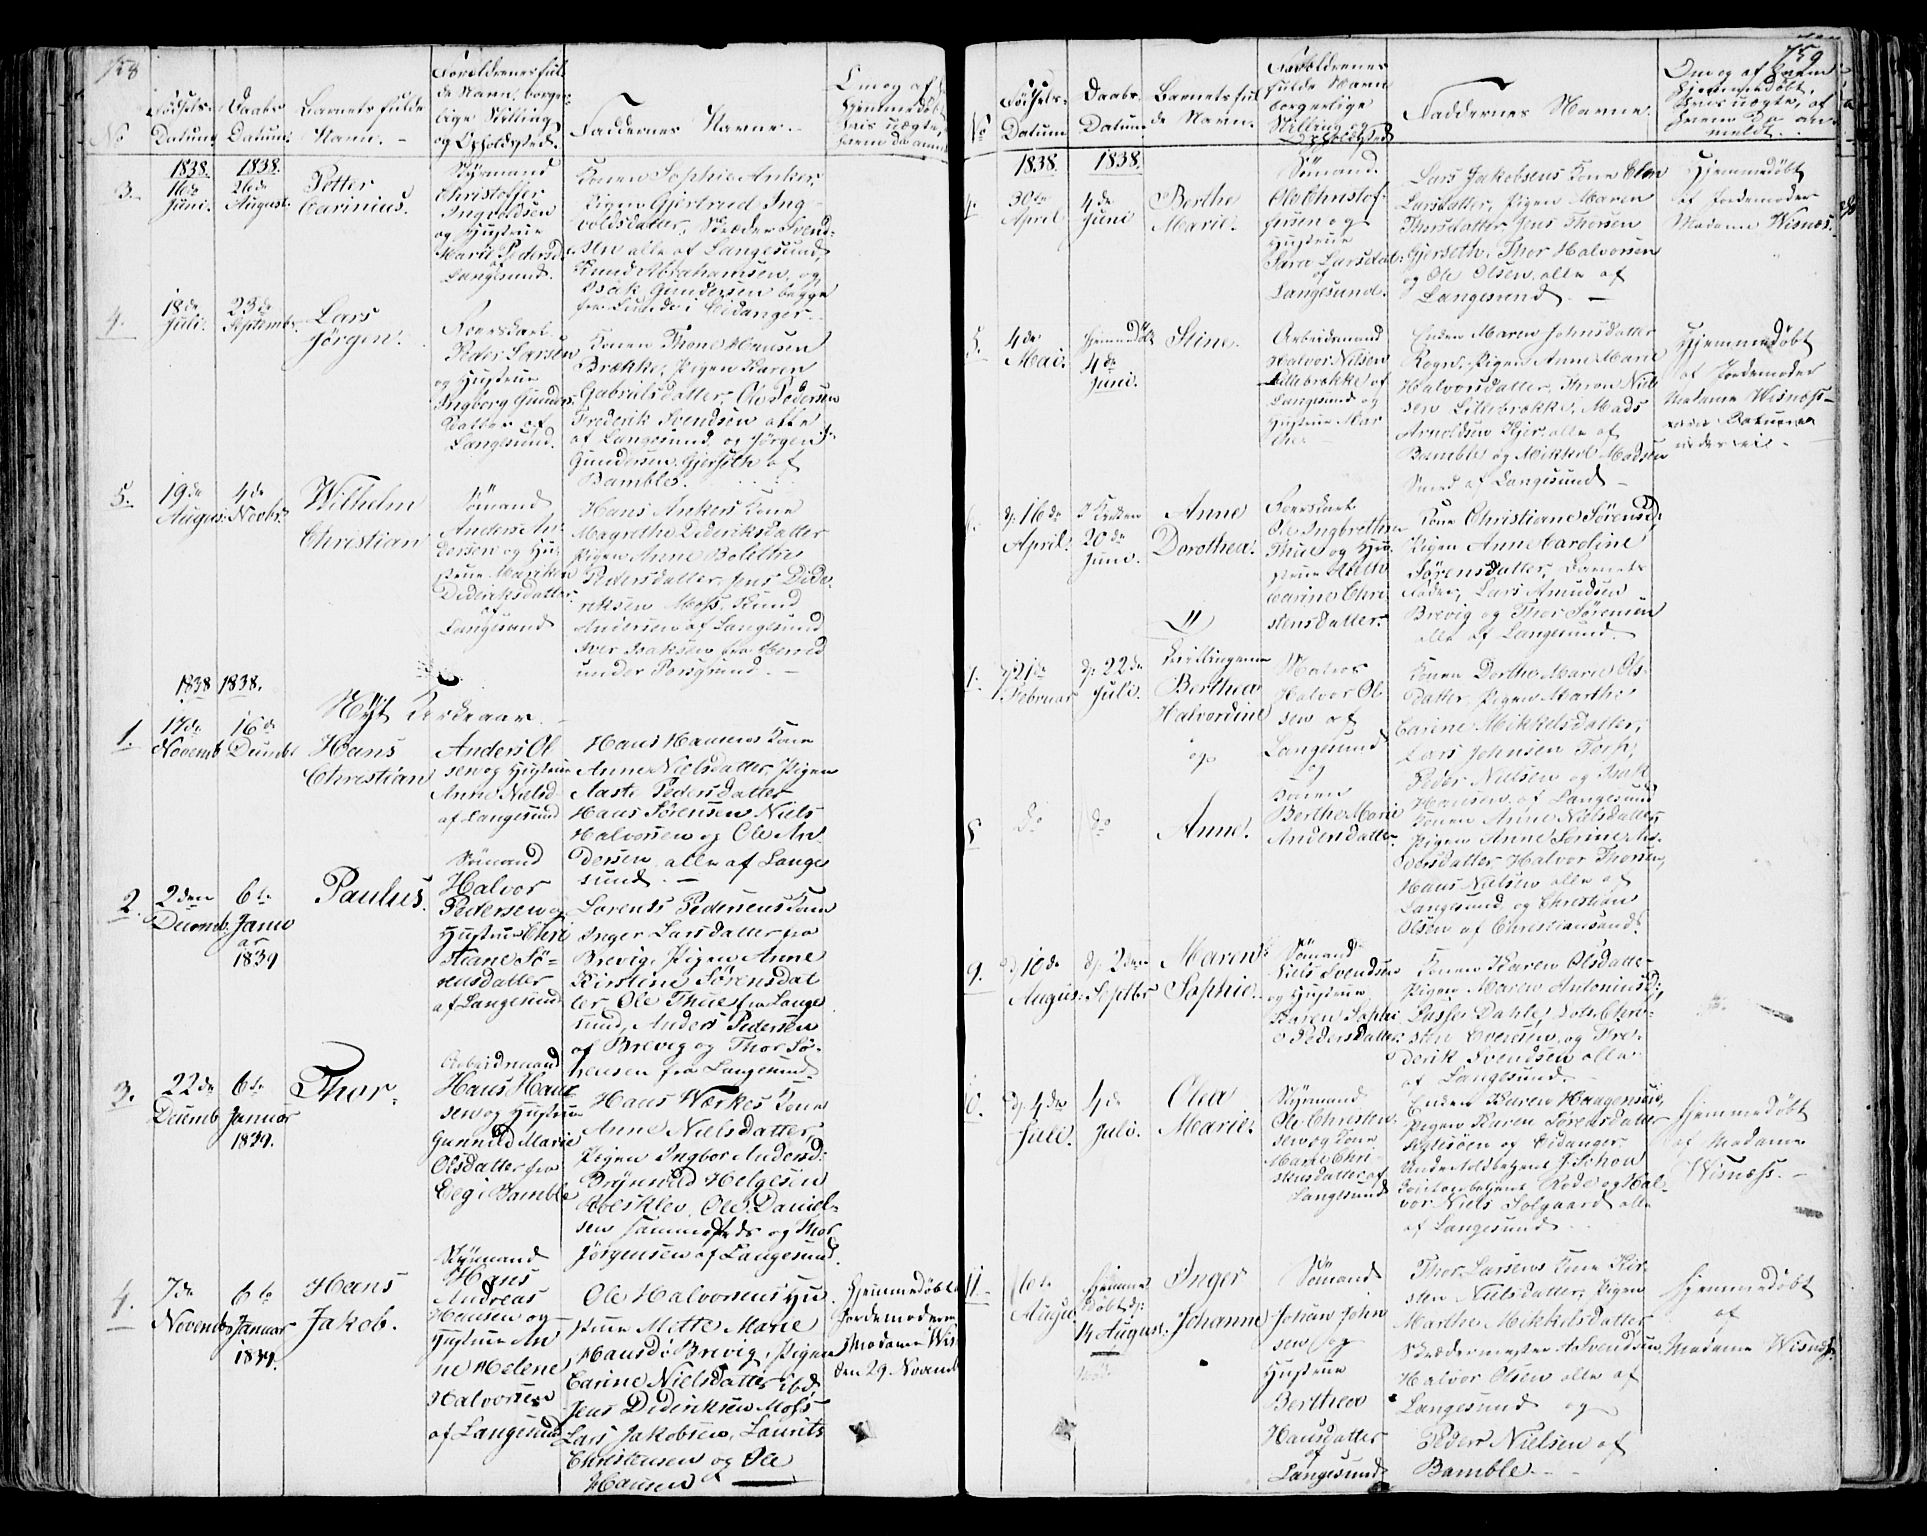 158
No
Fødsels-
Datum.
Daabs
Datum.
Barnets fulde
Navn. -
Forældrenes ful
de Navn, borger-
lige Stilling
og Opholdssted.
Faddernes Navne. -
Om og af
Hjemmedøbt
1838.
3.
16de
Juni.
1838.
26de
August.
Petter
Carinius.
Styrmand
Christoffer
Ingvoldsen
og Hustrue
Maria Pedersd.
af
Langesund.
Konen Sophie Anker,
Pigen Gjertrud Ing-
voldsdatter, Skræder Svend-
sen alle af Langesund,
Knud Abrahamsen, og
Isak Gundersen begge
fra i Eidanger.
4.
18de
Juli.
23de
Septemb.
Lars
Jørgen.
Peder Larsen
og Hustrue
Ingborg Gunders
datter af
Langesund.
Konen Thone Hansen
Brække, Pigen Karen
Gabrielsdatter, Ole Pedersen
Frederik Svendsen alle
af Langesund, og Jørgen
Gundersen Gjerseth af
Bamble.
5.
19de
August.
4de
Novbr.
Wilhelm
Christian
Sømand
Anders An-
dersen og Hu-
strue Mariken
Dideriksdatter
af
Langesund
Hans Ankers Kone
Magrethe Dideriksdatter
Pigen Anne Bolethe
Pedersdatter, Jens Dide-
riksen Moss, Knud
Andersen af Langesund
Iver Isaksen fra
under Porsgrund. -
1838 1838.
Nyt Kirkeaar.
1.
17de
Novemb
16de
Decembr
Hans
Christian
Anders Ol
sen og Hustrue
Anne Nielsd
af Langesund
Hans Hansens Kone
Anne Nielsdatter, Pigen
Aaste Pedersdatter
Hans Sørensen Niels
Halvorsen og Ole An
dersen, alle af Lange
sund. -
2.
2den
Decemb.
6te
Janu
ar
1839
Paulus.
Sømand
Halvor
Pedersen og
Hustrue Chri
stiane Sø-
rensdatter
af Langesund
Lorents Pedersens Kone
Inger Larsdatter fra
Brevig, Pigen Anne
Kirstine Sørensdat
ter, Ole Thue fra Lange
sund, Anders Pedersen
af Brevig og Thor Sø-
rensen fra Langesund.
3.
22de
Decemb
6te
Januar
1839.
Thor.
Arbeidsmand
Hans Han
sen og Hustrue
Gunnild Marie
Olsdatter fra
Eeg i Bamble
Hans Werkes Kone
Anne Nielsdatter,
Pigen Ingbor Andersd.
Brynnild Helgesen
Ole Daniel-
sen sammesteds og Thor
Jørgensen af Langesund.
4.
7de
Novemb
6te
Januar
1839.
Hans
Jakob.
Styrmand
Hans
Andreas
Hansen og
Hustrue An
ne Helene
Halvorsen
af Langesund
Ole Halvorsens Hu
strue Mette Marie
Hansd: Brevig, Pigen
Carine Nielsdatter ibd,
Jens Dideriksen Moss
Lars Jakobsen, Laurits
Christensen og Ole
Hansen
Hjemmedøbt
Jordemoderen
Madame Wis
den 29. Novemb
159
No
Fødsels-
Datum.
Daabs
Datum
Barnets ful
de Navn.
Forældrenes
fulde Navn
borgerlige
Stilling og
Opholdssted
Faddernes Navne.
Om og af hvem
Hjemmedøbt,
meldt.
1838.
30te
April
1838.
4de
Juni
Berthe
Marie.
Sømand.
Ole Christof-
fersen og
Hustrue
Sara Larsdat.
af
Langesund.
Lars Jakobsens Kone Elen
Larsdatter, Pigen Maren
Thorsdatter Jens Thorsen
Gjerseth, Thor Halvorsen
og Ole Olsen, alle af
Langesund. -
Hjemmedøbt
af Jordemoder
Madame Wisnæs.
5.
4de
Mai.
Hjemmedøbt
4de
Juni.
Stine.
Arbeidsmand
Halvor Nilsen
Lillebrække af
Langesund og
Hustrue Mar
the. -
Enken Maren Johnsdatter
Rogn, Pigen Anne Marie
Halvorsdatter, Thron Niel
sen Lillebrække, Mads
Arnoldsen Kjer, alle af
Bamble og Mikkel Madsen
Smed af Langesund -
Hjemmedøbt
af Jordemoder
Madame Wisnæss-
d. 16de
April.
20de
Juni.
Anne
Dorothea.
Ole Ingbrethsen
Thue og Hu-
strue
Carine Chri
stensdatter.
Kone Christiane Sørensd.
Pigen Anne Caroline
Sørensdatter, Barnets
Fader, Lars Amundsen
Brevig og Thor Sørensen
alle af Langesund.
d 21de
Februar
d. 22de
Juli.
Tvillingerne
Berthea
Halvordine
og
Halvor Ol
sen af
Langesund
og
Konen
Berthe Marie
Andersdatter.
Konen Dorthe Marie Ols-
datter, Pigen Marthe
Carine Mikkelsdatter,
Lars Johnsen
Peder Nielsen og Isak
Hansen, af Langesund
8
do
do
Anne.
Konen Anne Nielsdatter,
Pigen Anne Sorine
datter Halvor Thorsen,
Hans Nielsen alle af
Langesund, og Christian
Olsen af Christiansund.
9.
d. 10de
August.
d. 2den
Septbr
Maren
Sophie.
Sømand
Niels Svendsen
og Hustrue
Karen Sophi
e Pedersdatter
Konen Karen Olsdatter
Pigen Maren Antoniusd.,
Dahle,
sten Eversen, og Fre-
derik Svendsen alle
af Langesund. -
10.
d. 4de
Juli.
4de
Juli.
Olea
Marie.
Styrmand
Ole Christen
sen og Kone
Marthe Chri-
stensdatter af
Langesund
Enken Karen Haagensen,
Pigen Karen Sørensdatter
af Eidanger,
Schou
Rode og Hal-
vor Niels Solgaard alle
af Langesund
Hjemmedøbt
af Madame
Wisnæss. -
11.
16te
August
Hjemme
døbt d.
14 August.
Inger
Johanne
Sømand
Johan John
sen og
Hustrue
Berthea
Hansdatter
af
Langesund
Thor Larsens Kone Kir
sten Nielsdatter, Pigen
Marthe Mikkelsdatter
Skrædermester A. Svendsen,
Halvor Olsen alle af
Langesund og
Peder Nielsen af
Bamble. -
Hjemmedøbt
af
Madame Wisnæss.